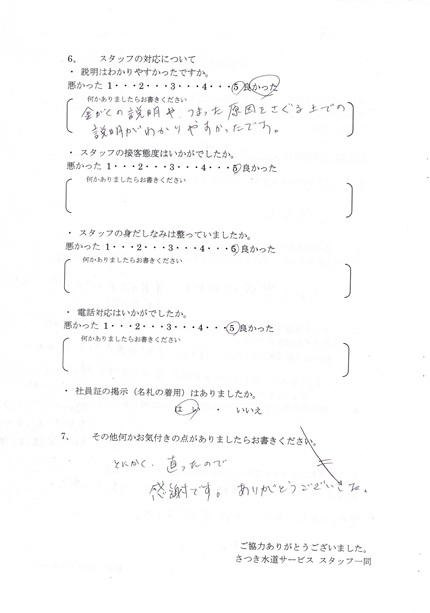 6、 スタッフの対応について
・ 説明はわかりやすかったですか。
悪かった 1・・・2・・・3・・・4・・・5 良かった
何かありましたらお書きください
金がくの説明や、つまった原因をさぐる上での
説明がわかりやすかったです。
・ スタッフの接客態度はいかがでしたか。
悪かった 1・・・2・・・3・・・4・・・5 良かった
何かありましたらお書きください
・ スタッフの身だしなみは整っていましたか。
悪かった 1・・・2・・・3・・・4・・・5 良かった
何かありましたらお書きください
・ 電話対応はいかがでしたか。
悪かった 1・・・2・・・3・・・4・・・5 良かった
何かありましたらお書きください
・ 社員証の掲示（名札の着用）はありましたか。
はい ・ いいえ
7、 その他何かお気付きの点がありましたらお書きください。
とにかく、直ったので
感謝です。ありがとうございました。
ご協力ありがとうございました。
さつき水道サービス スタッフ一同